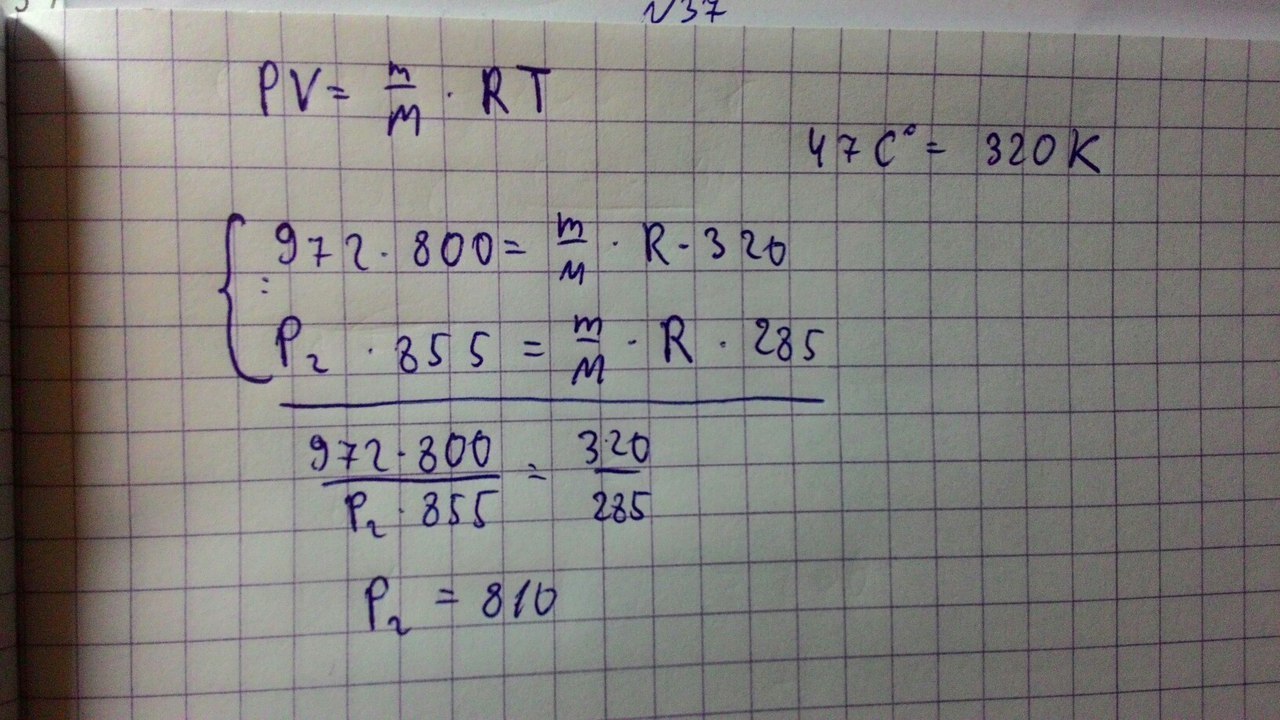 №37
PV = m/M · RT
47 C° = 320 K
972 · 800 = m/M · R · 320
:
P₂ · 855 = m/M · R · 285
972 · 800 / P₂ · 855 = 320 / 285
P₂ = 810